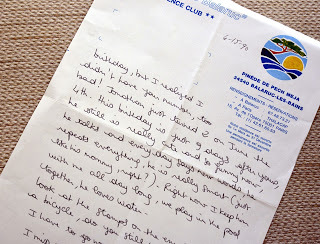 ENCE CLUB **
6-15-90
PINEDE DE PECH MEJA
34540 BALARUC-LES-BAINS
birthday, but I realized I
didn't have your number, too
bad! Jonathan just turned 2 on June the
4th this birthday is just 9 days after yours,
he is still so really cute and so funny now!
he talks and every day says new words, he
repeats everything, he is really smart (just
like his mommy right?). Right now I keep him
with me all day long, we play in the pool
together, he loves water.
look at the stamps on the
a bicycle - do you still
I have to go
I